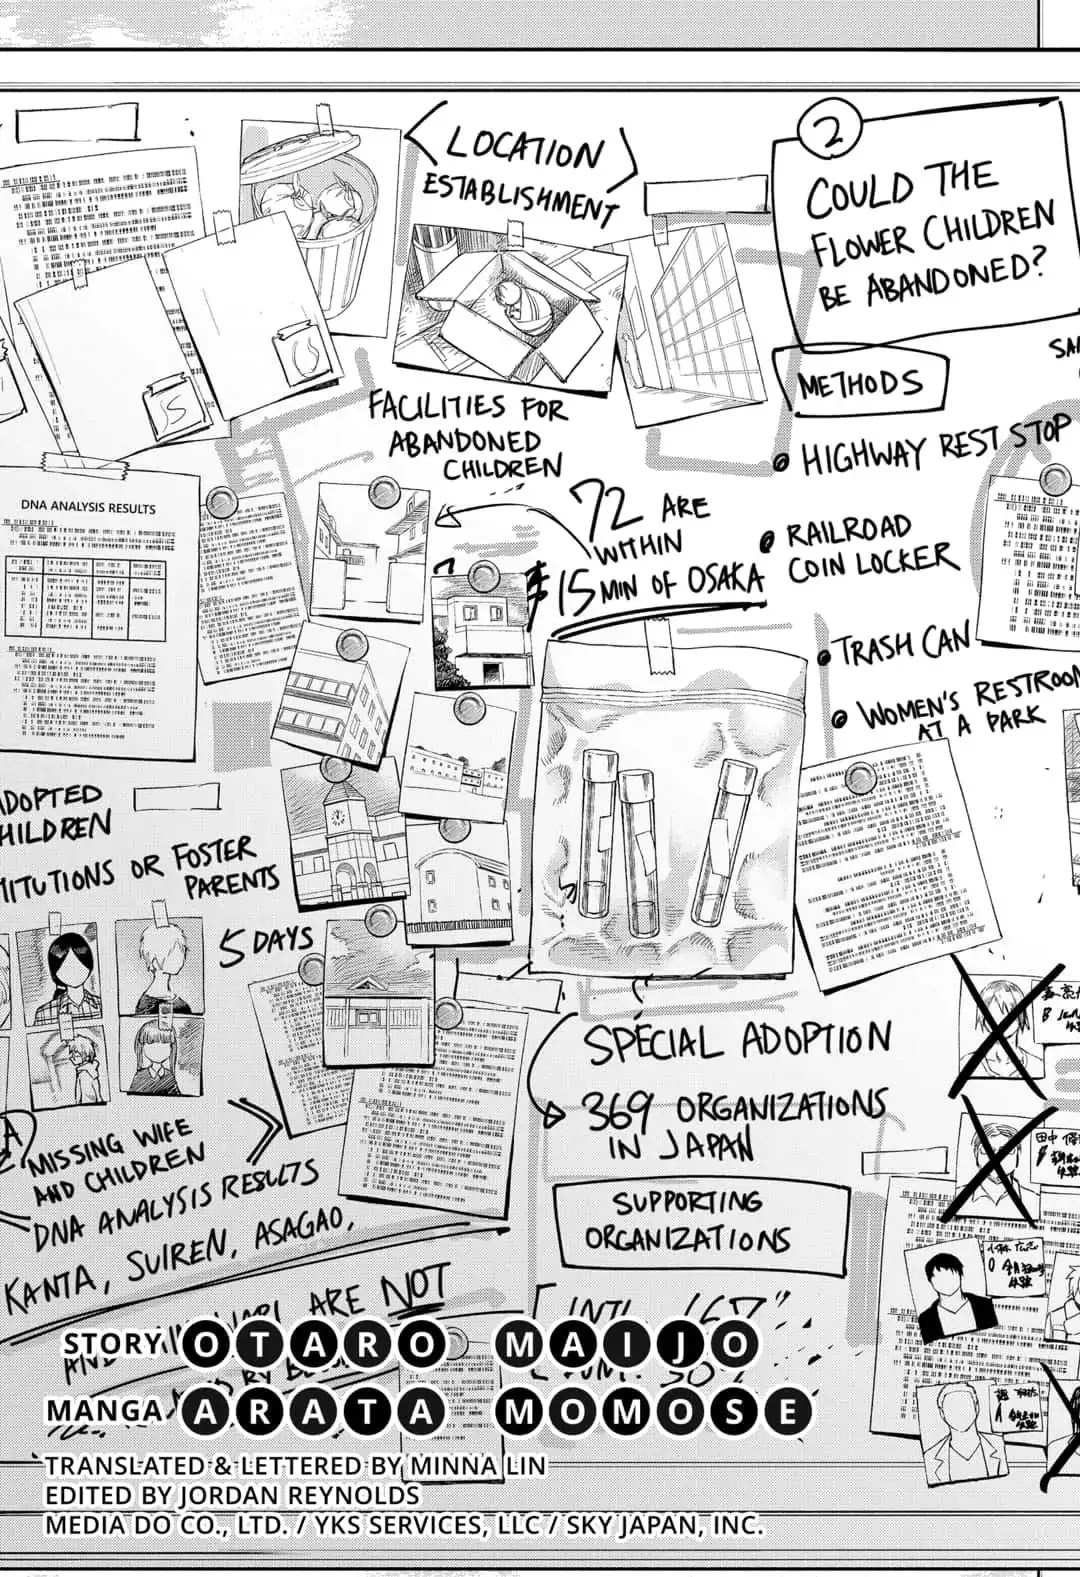 LOCATION
ESTABLISHMENT
2
COULD THE
FLOWER CHILDREN
BE ABANDONED?
METHODS
HIGHWAY REST STOP
RAILROAD
COIN LOCKER
TRASH CAN
WOMEN'S RESTROOM
AT A PARK
FACILITIES FOR
ABANDONED
CHILDREN
72 ARE
WITHIN
15 MIN OF OSAKA
DNA ANALYSIS RESULTS
ADOPTED
CHILDREN
TITUTIONS OR FOSTER
PARENTS
5 DAYS
MISSING WIFE
AND CHILDREN
DNA ANALYSIS RESULTS
KANTA, SUIREN, ASAGAO,
ARE NOT
SPECIAL ADOPTION
369 ORGANIZATIONS
IN JAPAN
SUPPORTING
ORGANIZATIONS
田中
STORY OTARO MAIJO
MANGA ARATA MOMOSE
TRANSLATED & LETTERED BY MINNA LIN
EDITED BY JORDAN REYNOLDS
MEDIA DO CO., LTD. / YKS SERVICES, LLC / SKY JAPAN, INC.